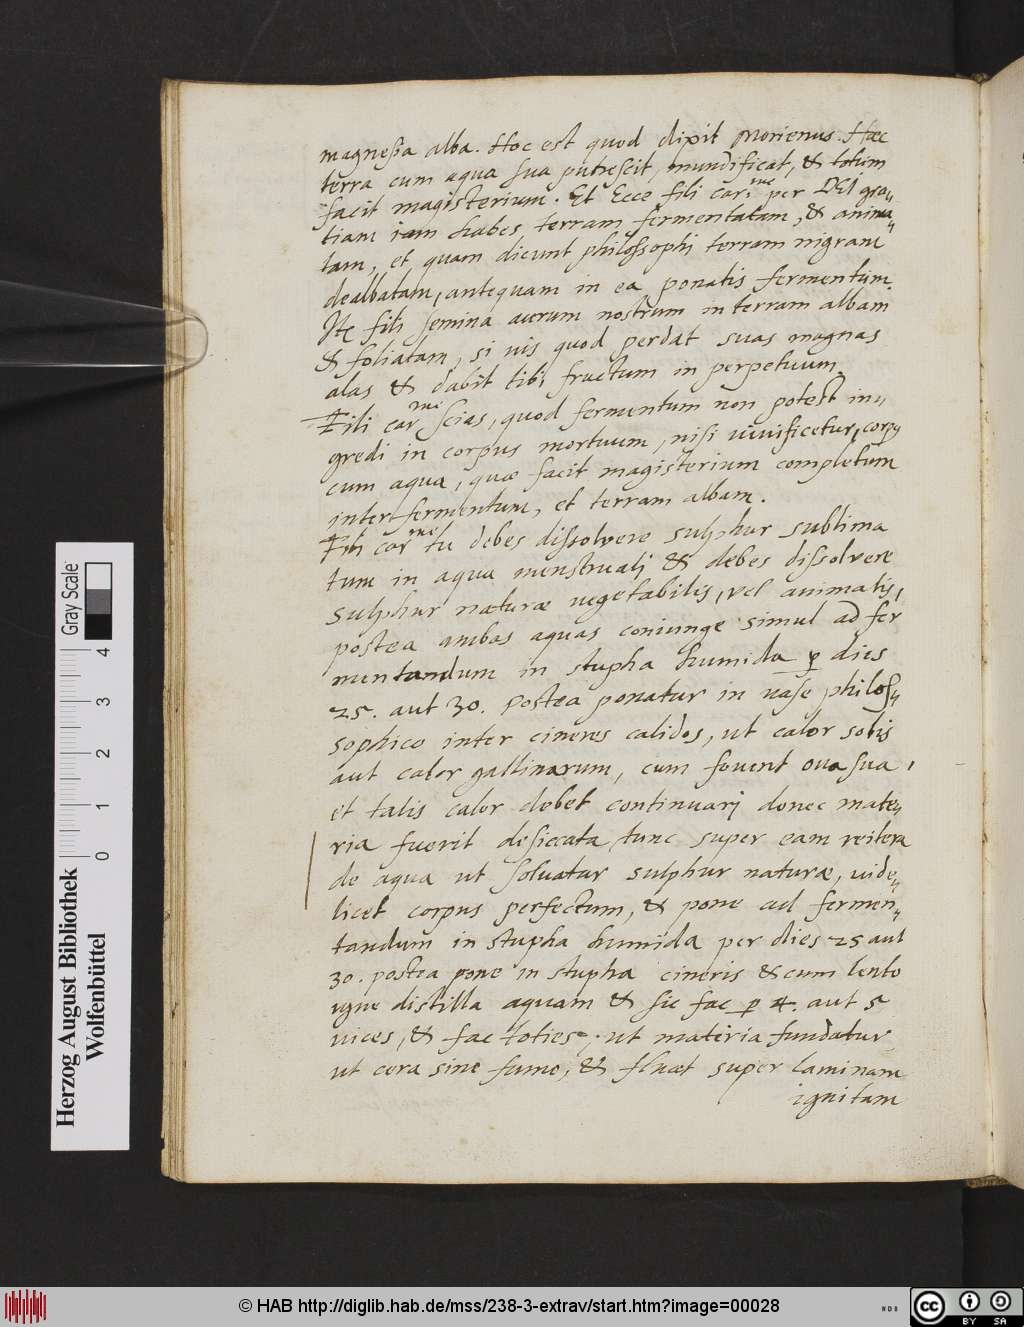 magnesia alba. Hoc est quod dixit Morienus. Hæc
terra cum aqua sua putrescit, mundificat, & totum
facit magisterium. Et Ecce fili car.me per DEI gra„
tiam iam habes terram fermentatam, & anima„
tam, et quam dicunt philosophi terram nigram
dealbatam, antequam in ea ponatis fermentum.
Ite fili semina aurum nostrum in terram albam
& foliatam, si uis quod perdat suas magnas
alas & dabit tibi fructum in perpetuum.
Fili carme scias, quod fermentum non potest in„
gredi in corpus mortuum, nisi uiuificetur corpus
cum aqua, quæ facit magisterium completum
inter fermentum, et terram albam.
Fili carme tu debes dissolvere sulphur sublima
tum in aqua menstruali & debes dissolvere
sulphur naturæ uegetabilis, vel animalis,
postea ambas aquas coniunge simul ad fer
mentandum in stupha humida p dies
25. aut 30. Postea ponatur in uase philos„
sophico inter cineres calidos, ut calor solis
aut calor gallinarum, cum fouent oua sua,
et talis calor debet continuarj donec mate„
ria fuerit desiccata, tunc super eam reitera
de aqua ut soluatur sulphur naturæ, uide„
licet corpus perfectum, & pone ad fermen„
tandum in stupha humida per dies 25 aut
30. postea pone in stupha cineris & cum lento
igne distilla aquam & sic fac p 4. aut 5
uices, & fac toties, ut materia fundatur
ut cera sine fumo, & fluat super laminam
ignitam
Herzog August Bibliothek
Wolfenbüttel
Gray Scale
0 1 2 3 4
© HAB http://diglib.hab.de/mss/238-3-extrav/start.htm?image=00028
NDB
cc BY SA